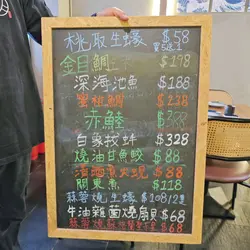 桃取生蠔 $58
金目鯛 $198
深海池魚 $188
$238
赤鯥 $388
白象拔蚌 $328
燒油甘魚鮫 $88
$88
關東煮 $118
蒜蓉燒生蠔 $108/2隻
牛油雜菌燒扇貝 $68
$68